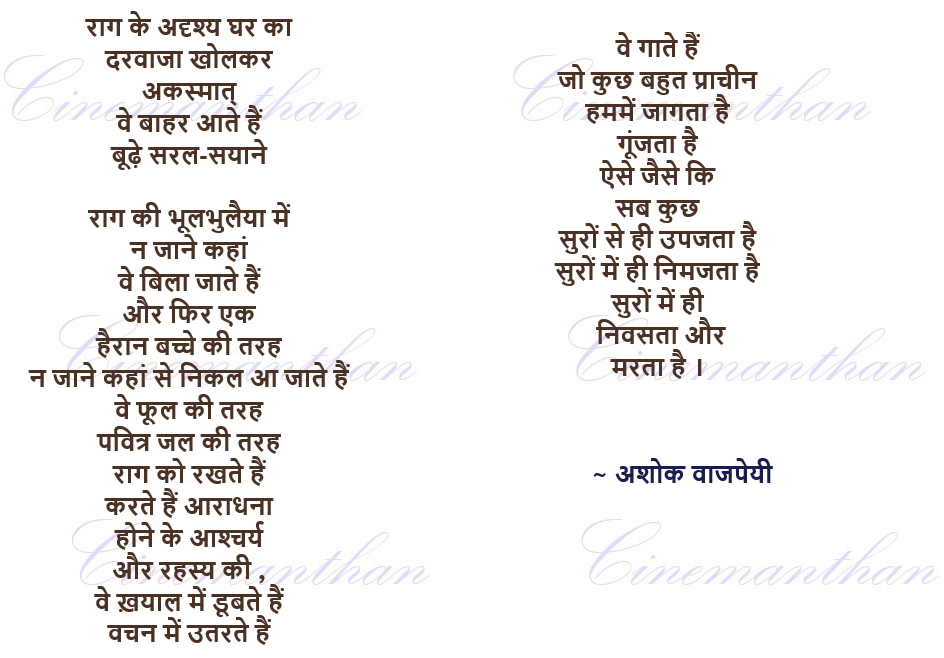 राग के अदृश्य घर का
दरवाजा खोलकर
अकस्मात्
वे बाहर आते हैं
बूढ़े सरल-सयाने
राग की भूलभुलैया में
न जाने कहां
वे बिला जाते हैं
और फिर एक
हैरान बच्चे की तरह
न जाने कहां से निकल आ जाते हैं
वे फूल की तरह
पवित्र जल की तरह
राग को रखते हैं
करते हैं आराधना
होने के आश्चर्य
और रहस्य की ,
वे ख़याल में डूबते हैं
वचन में उतरते हैं
वे गाते हैं
जो कुछ बहुत प्राचीन
हममें जागता है
गूंजता है
ऐसे जैसे कि
सब कुछ
सुरों से ही उपजता है
सुरों में ही निमजता है
सुरों में ही
निवसता और
मरता है ।
~ अशोक वाजपेयी
Cinemanthan
Cinemanthan
Cinemanthan
Cinemanthan
Cinemanthan
Cinemanthan